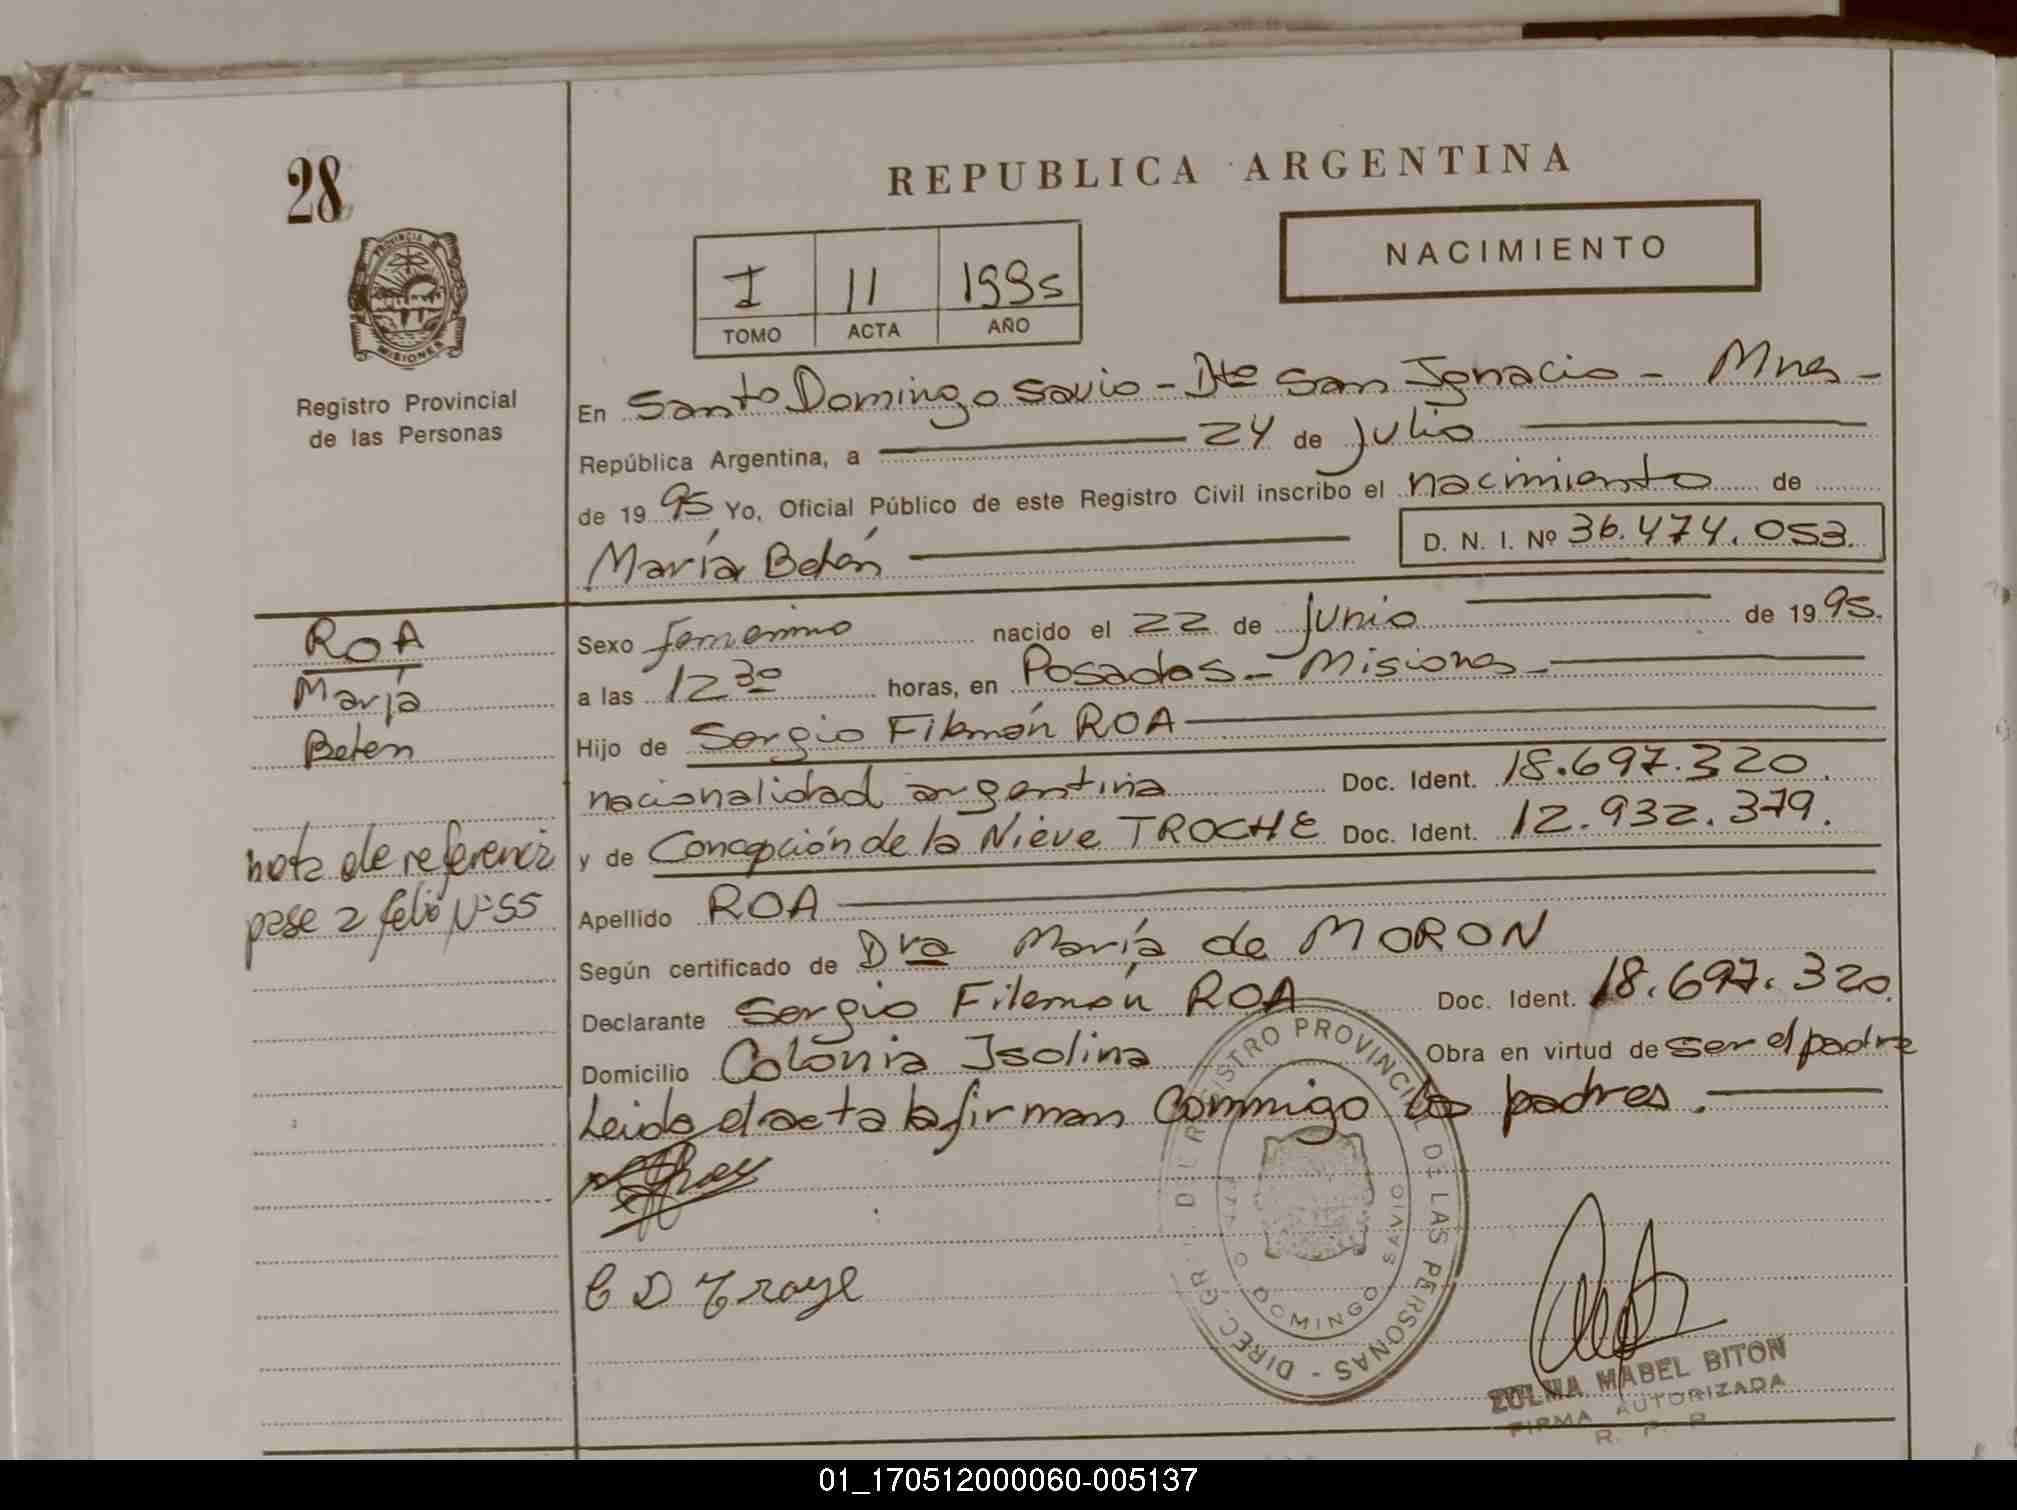 28
PROVINCIA DE
MISIONES
Registro Provincial
de las Personas
REPUBLICA ARGENTINA
I 11 1995
TOMO ACTA AÑO
NACIMIENTO
En Santo Domingo Savio - Dto San Ignacio - Mnes -
República Argentina, a 24 de Julio
de 1995 Yo, Oficial Público de este Registro Civil inscribo el nacimiento de
María Belén D. N. I. Nº 36.474.053.
Sexo femenino nacido el 22 de Junio de 1995.
a las 12 30 horas, en Posadas - Misiones -
Hijo de Sergio Filemón ROA
nacionalidad argentina Doc. Ident. 18.697.320.
y de Concepción de la Nieve TROCHE Doc. Ident. 12.932.379.
Apellido ROA
Según certificado de Dra María de MORON
Declarante Sergio Filemón ROA Doc. Ident. 18.697.320.
Domicilio Colonia Isolina Obra en virtud de ser el padre
Leida el acta la firman commigo los padres.
ROA
María
Belén
nota de referencia
pase a folio Nº 55
DIREC. GRAL. DE REGISTRO PROVINCIAL DE LAS PERSONAS -
SANTO DOMINGO SAVIO
ZULMA MABEL BITON
FIRMA AUTORIZADA
R. P. P.
01_170512000060-005137